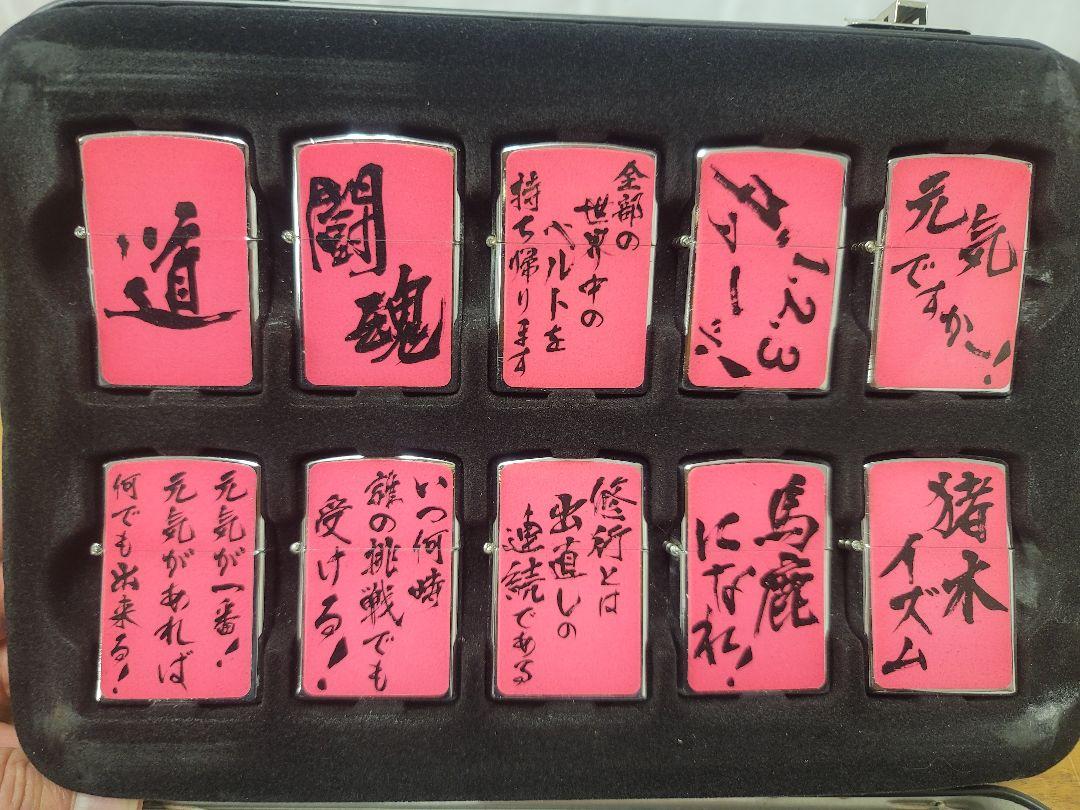 道
闘
魂
全部の
世界中の
ベルトを
持ち帰ります
1.2.3
ダァーッ!
元気
ですか!
元気が一番!
元気があれば
何でも出来る!
いつ何時
誰の挑戦でも
受ける!
修行とは
出直しの
連続である
馬鹿
になれ!
猪木
イズム